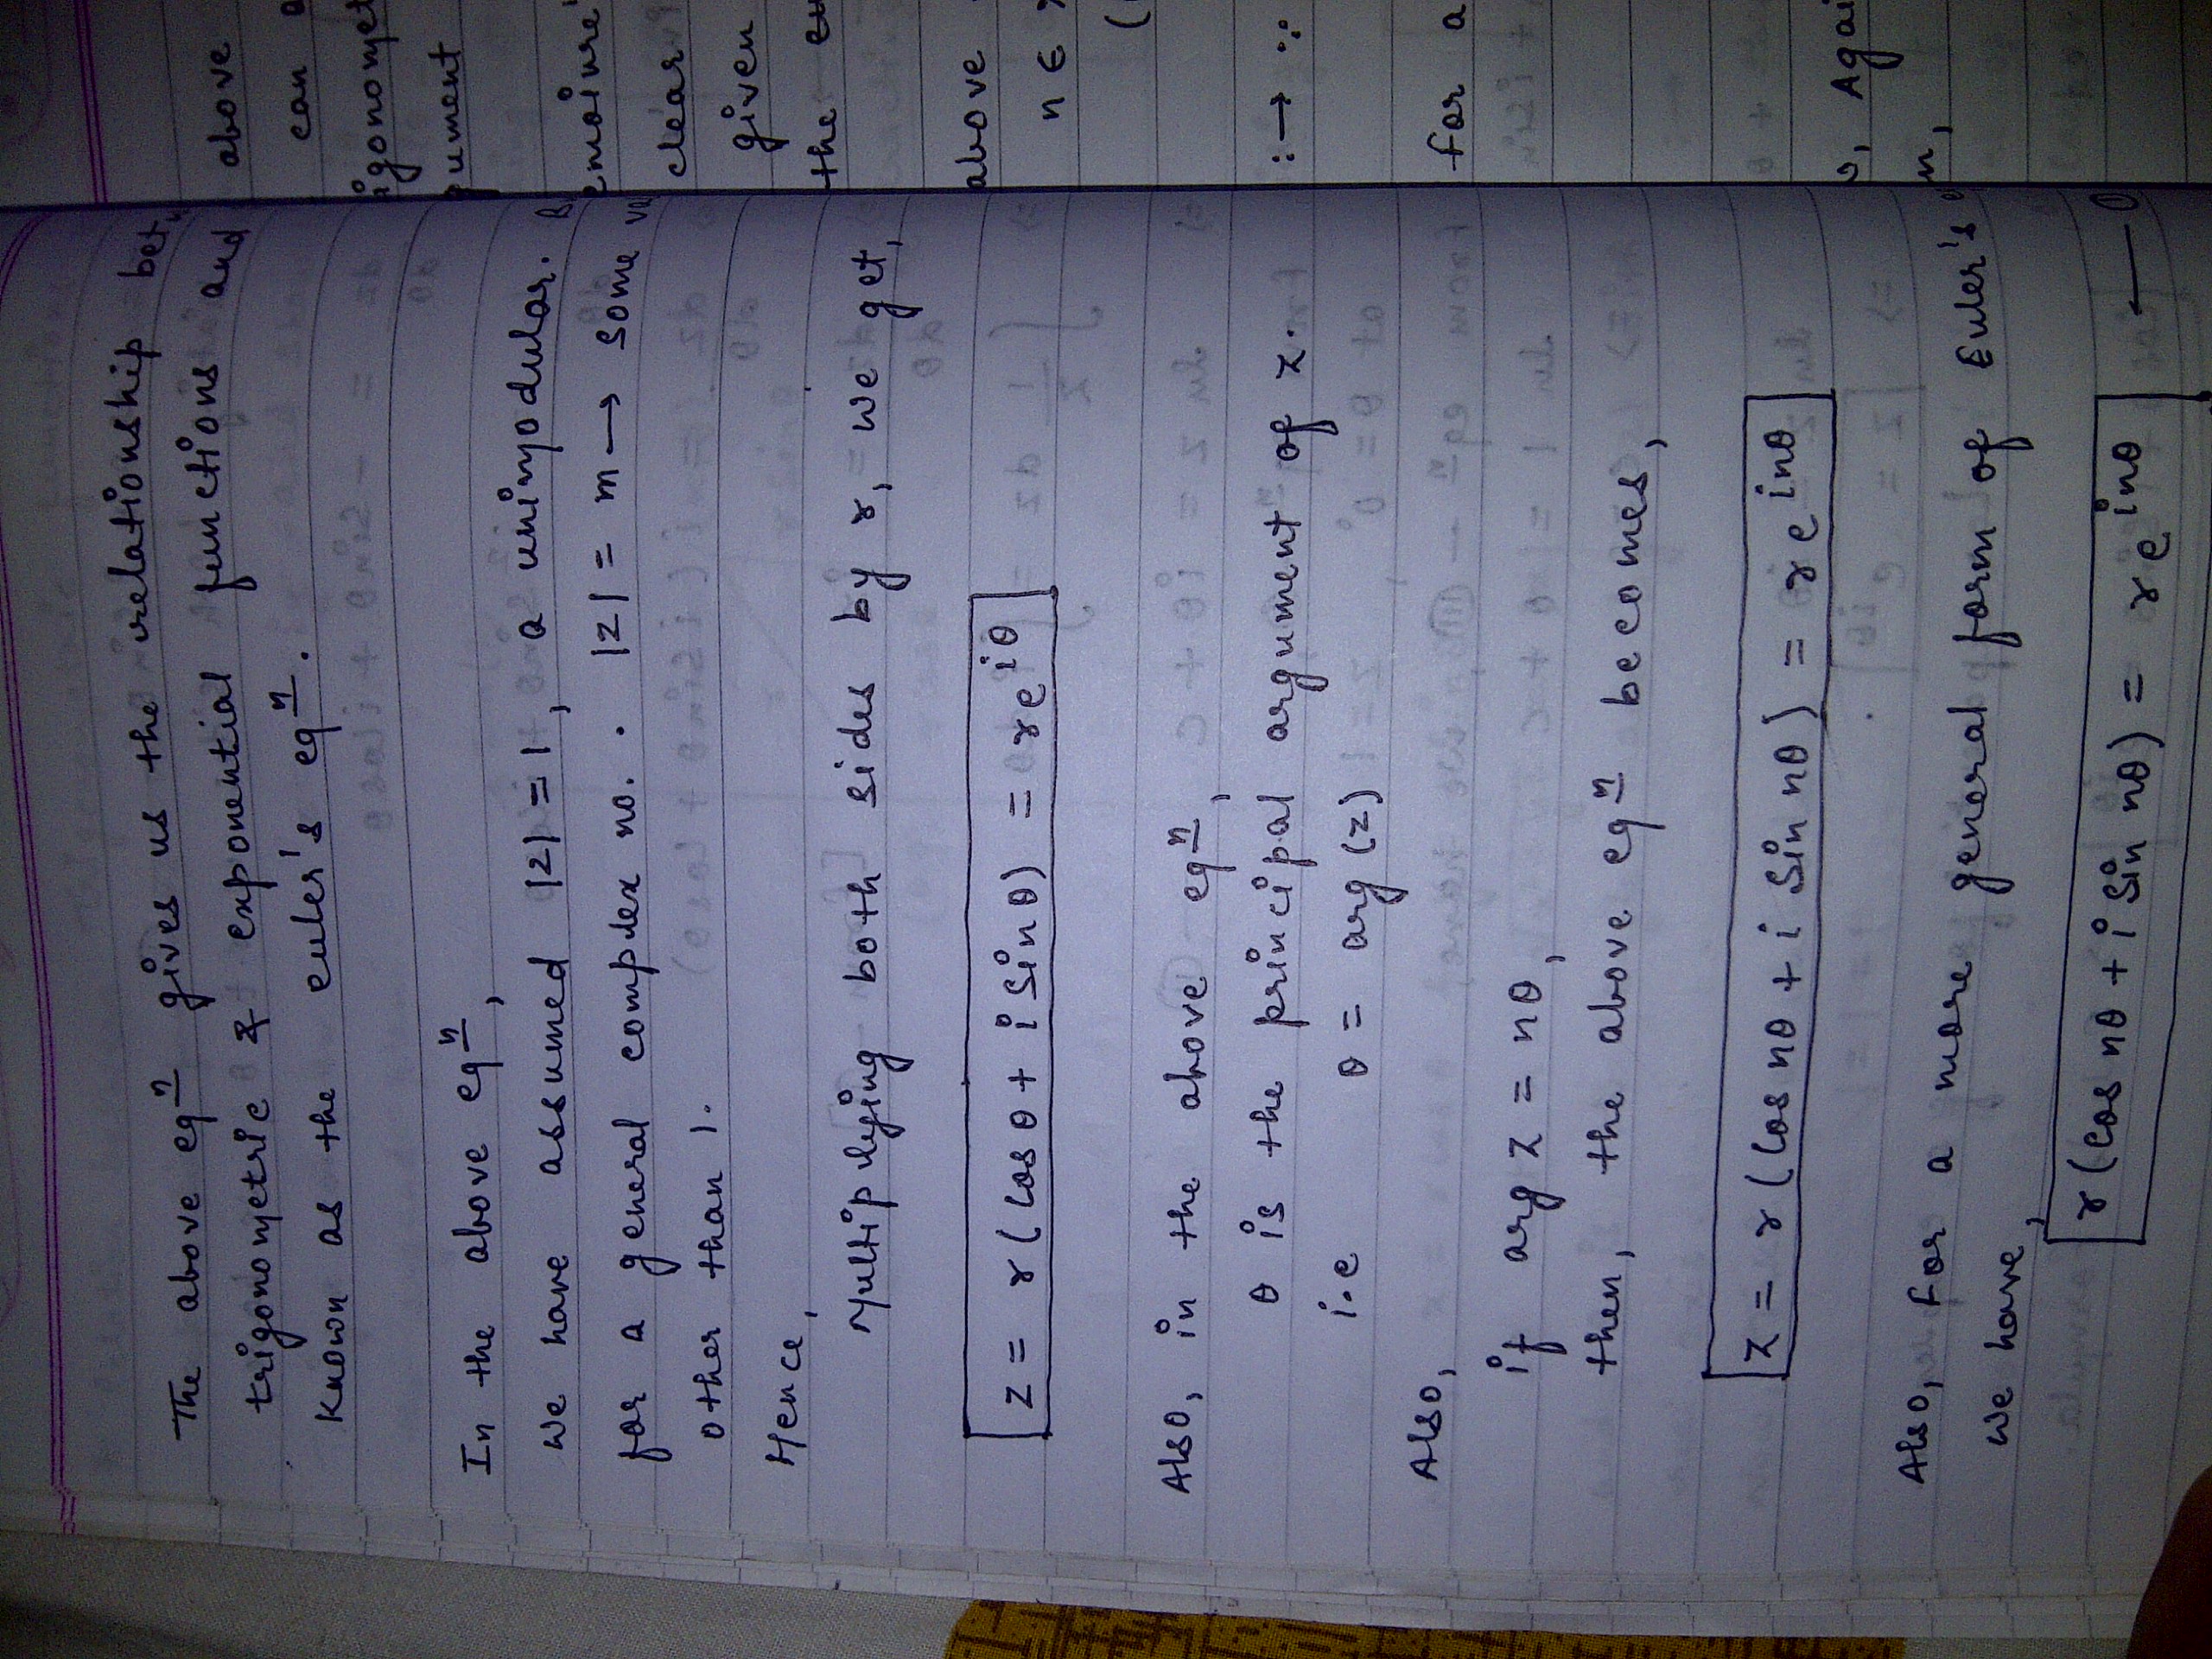 The above eqn gives us the relationship bet
trigonometric & exponential functions and
known as the euler's eqn.
In the above eqn,
we have assumed |z| = 1, a unimodular.
for a general complex no. . |z| = m → some
other than 1.
Hence,
Multiplying both sides by r, we get,
z = r(cosθ + i sinθ) = re^{iθ}
Also, in the above eqn,
θ is the principal argument of z.
i.e θ = arg (z)
Also,
if arg z = nθ,
then, the above eqn becomes,
z = r(cos nθ + i sin nθ) = re^{inθ}
Also, for a more general form of Euler's
we have,
r(cos nθ + i sin nθ) = re^{inθ} ←
above
can
igonomet
gument
emoivre'
clear
given
the
above
n ∈
(
:→ ∵
for a
, Agai
n,